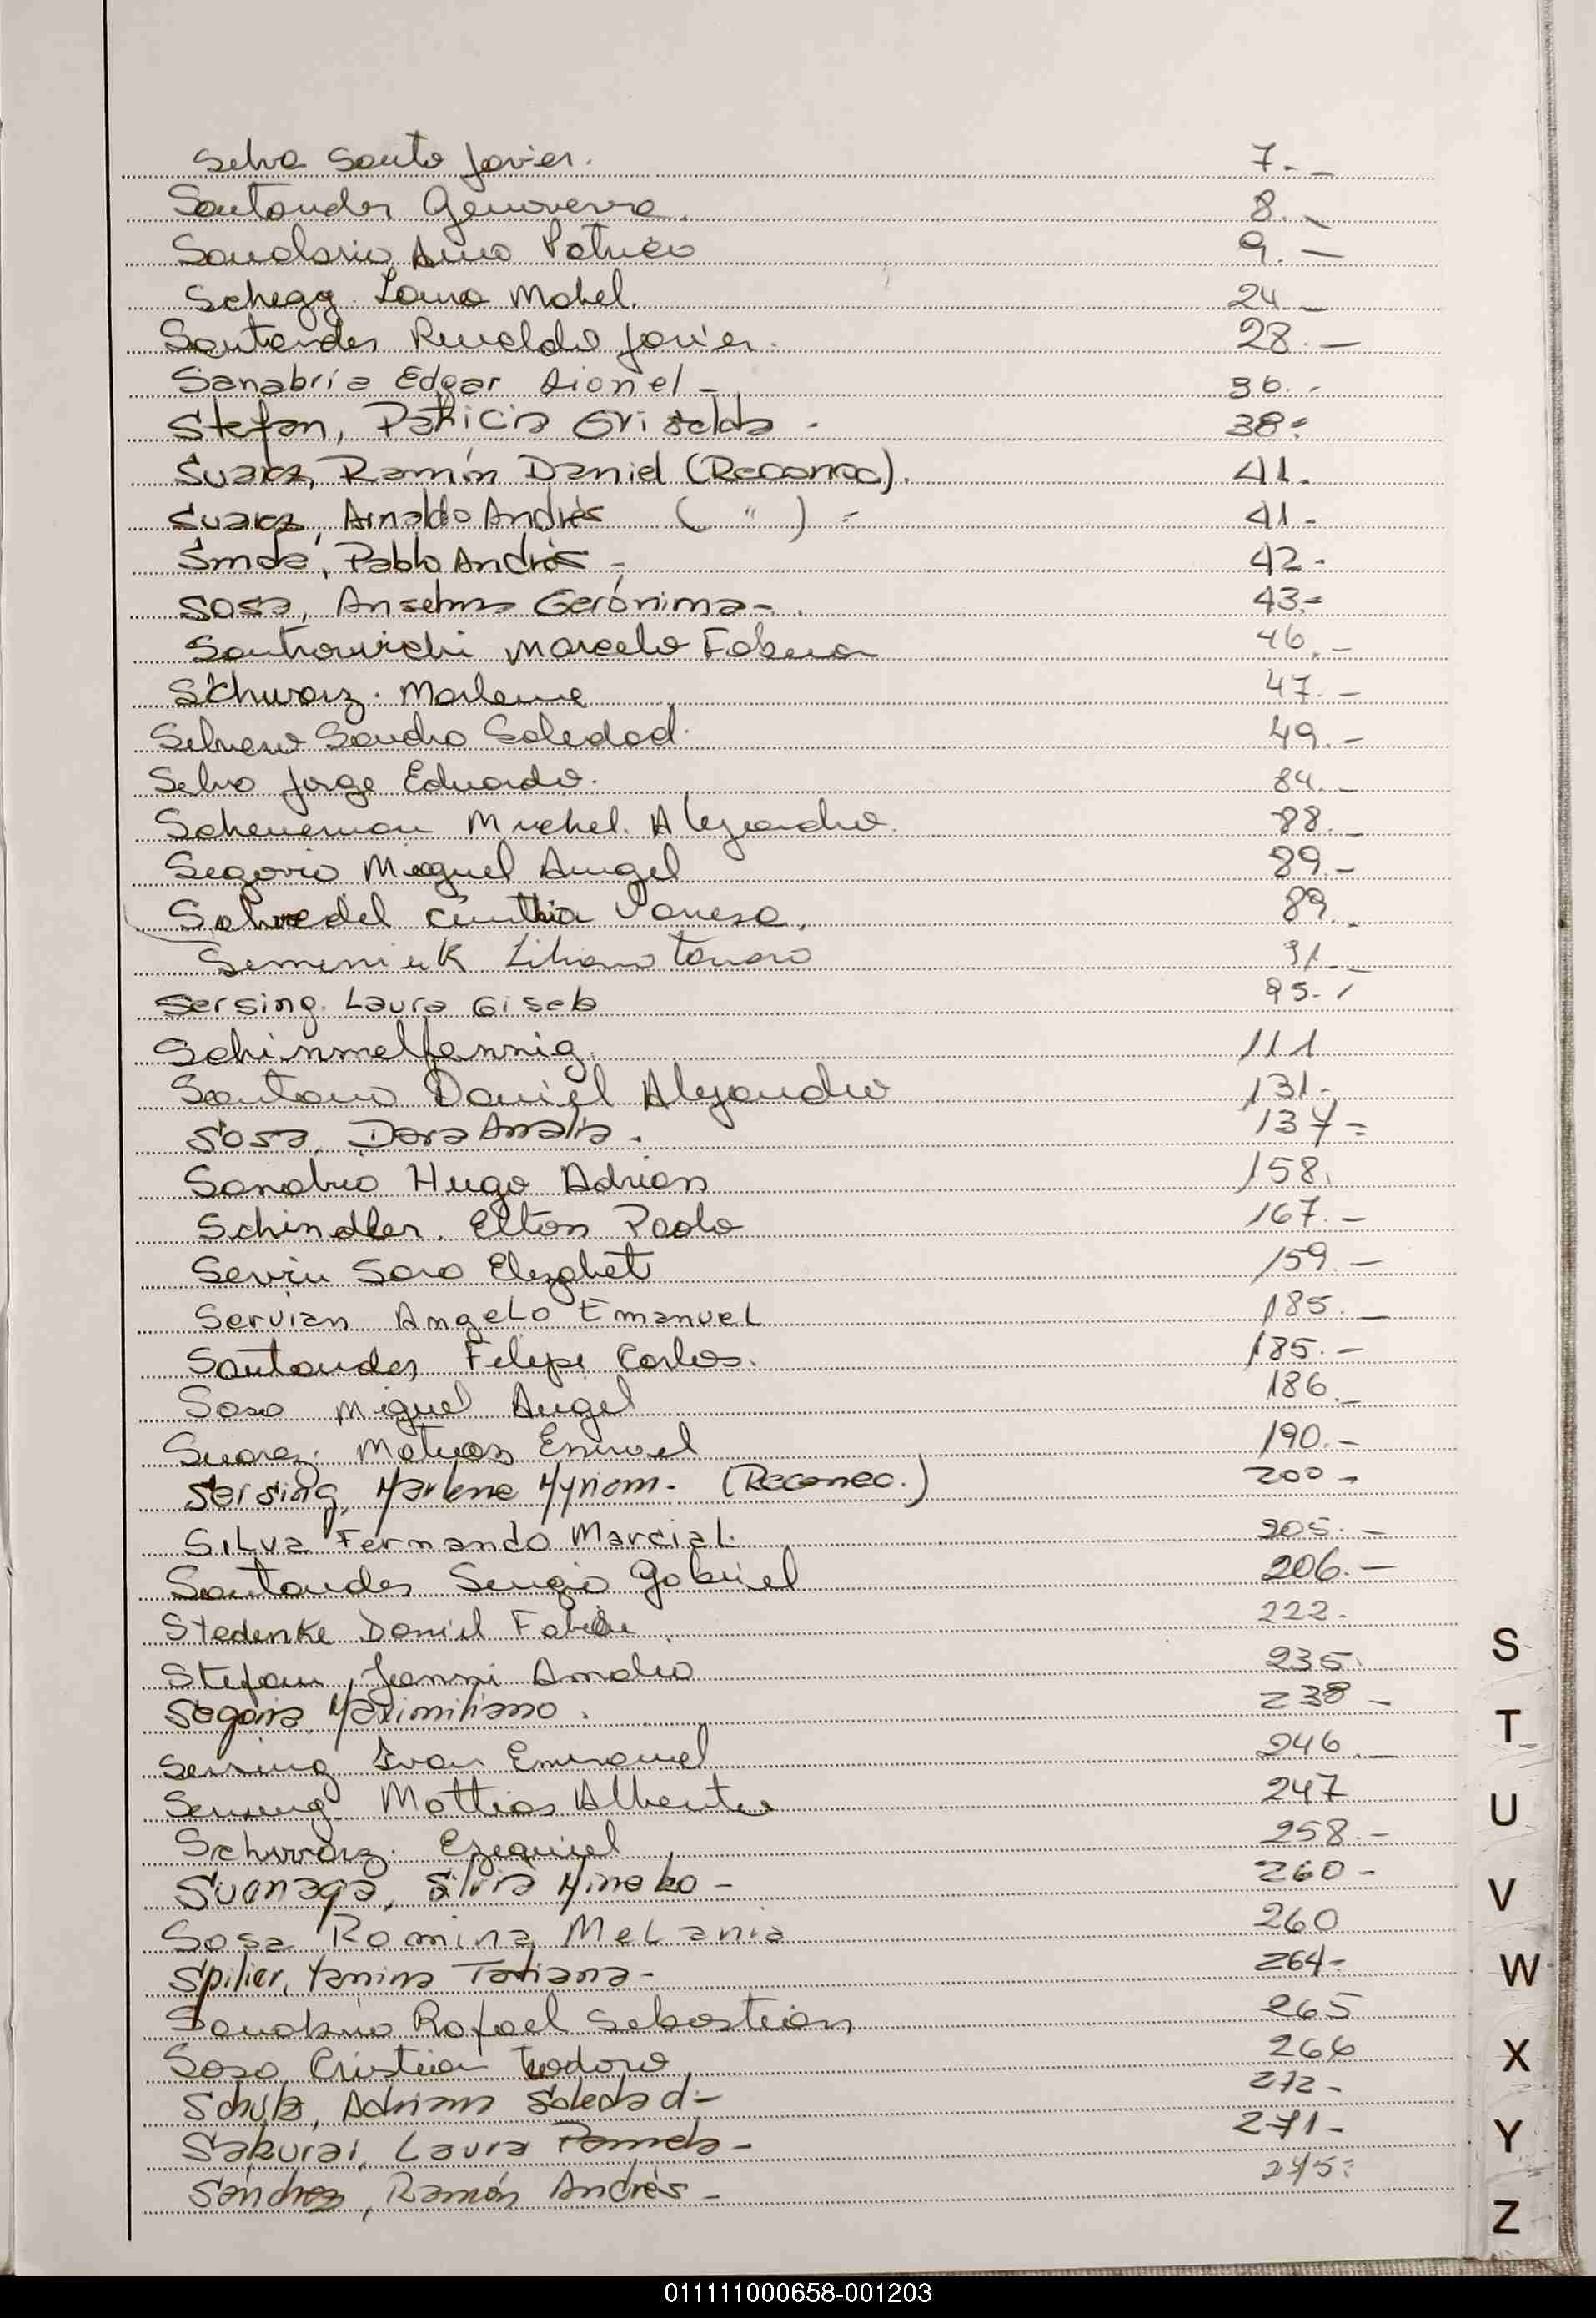 Selva Santo Javier. 7.-
Santander Genoveva. 8.-
Sanabria Ana Patricia 9.-
Schegg Laura Mabel. 24 -
Santander Reinaldo Javier. 28.-
Sanabria Edgar Lionel - 36.-
Stefan, Patricia Griselda - 38=
Suarez, Ramón Daniel (Reconoc). 41.
Suarez, Arnaldo Andrés ( " ) = 41-
Smda, Pablo Andrés - 42-
Sosa, Anselma Gerónima-. 43.-
Marcelo Fabian 46.-
Schwarz. Marlene 47.-
Silvero Sandra Soledad. 49.-
Silva Jorge Eduardo. 84.-
Scheuerman Michel Alejandro. 88.-
Segovia Miguel Angel 89.-
Cinthia Vanesa. 89.
Semeniuk Liliana Tamara 91.-
Sersing. Laura Gisela 95.-
Schimmelfennig. 111
Santana Daniel Alejandro 131.
Sosa, Dora Amalia. 137=
Sanabria Hugo Adrian 158.
Schindler. Elton Paolo 167.-
Servin Sara Elizabet 159.-
Servian Angelo Emanuel 185.-
Santander Felipe Carlos. 185.-
Sosa Miguel Angel 186.-
Suarez. Matias Emanuel 190.-
Sersing, Marlene Myriam. (Reconoc.) 200-
Silva Fernando Marcial. 205.-
Santander Sergio Gabriel 206.-
Stedenke Daniel Fabián. 222.
Stefan, Amalia 235.
Segovia Maximiliano. 238-
Sersing Ivan Emmanuel 246.-
Sersing. Mattias Alberto 247
Schwarz. Ezequiel 258.-
Suenaga, Silvia Minako - 260-
Sosa Romina Melania 260
Spilier, Yanina Tatiana- 264-
Sanabria Rafael Sebastian 265
Sosa Cristian Teodoro 266
Schultz, Adriana Soledad- 272-
Sakurai, Laura Pamela- 271-
Sánchez, Ramón Andrés- 275=
S
T
U
V
W
X
Y
Z
011111000658-001203